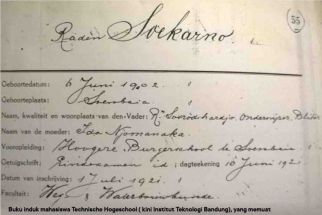 55
Raden Soekarno.
Geboortedatum: 6 Juni 1902
Geboorteplaats: Soerabaia
Naam, kwaliteit en woonplaats van den Vader: Rn Soekodi hardjo, Onderwijzer, Blitar
Naam van de moeder: Ida Njomanaka.
Vooropleiding: Hoogere Burgerschool te Soerabaia
Getuigschrift: Eindexamen id; dagteekening 10 Juni 1921
Datum van inschrijving: 1 Juli 1921.
Faculteit: Weg & Waterbouwkunde.
Buku induk mahasiswa Technische Hogeschool ( kini Institus Teknologi Bandung), yang memuat